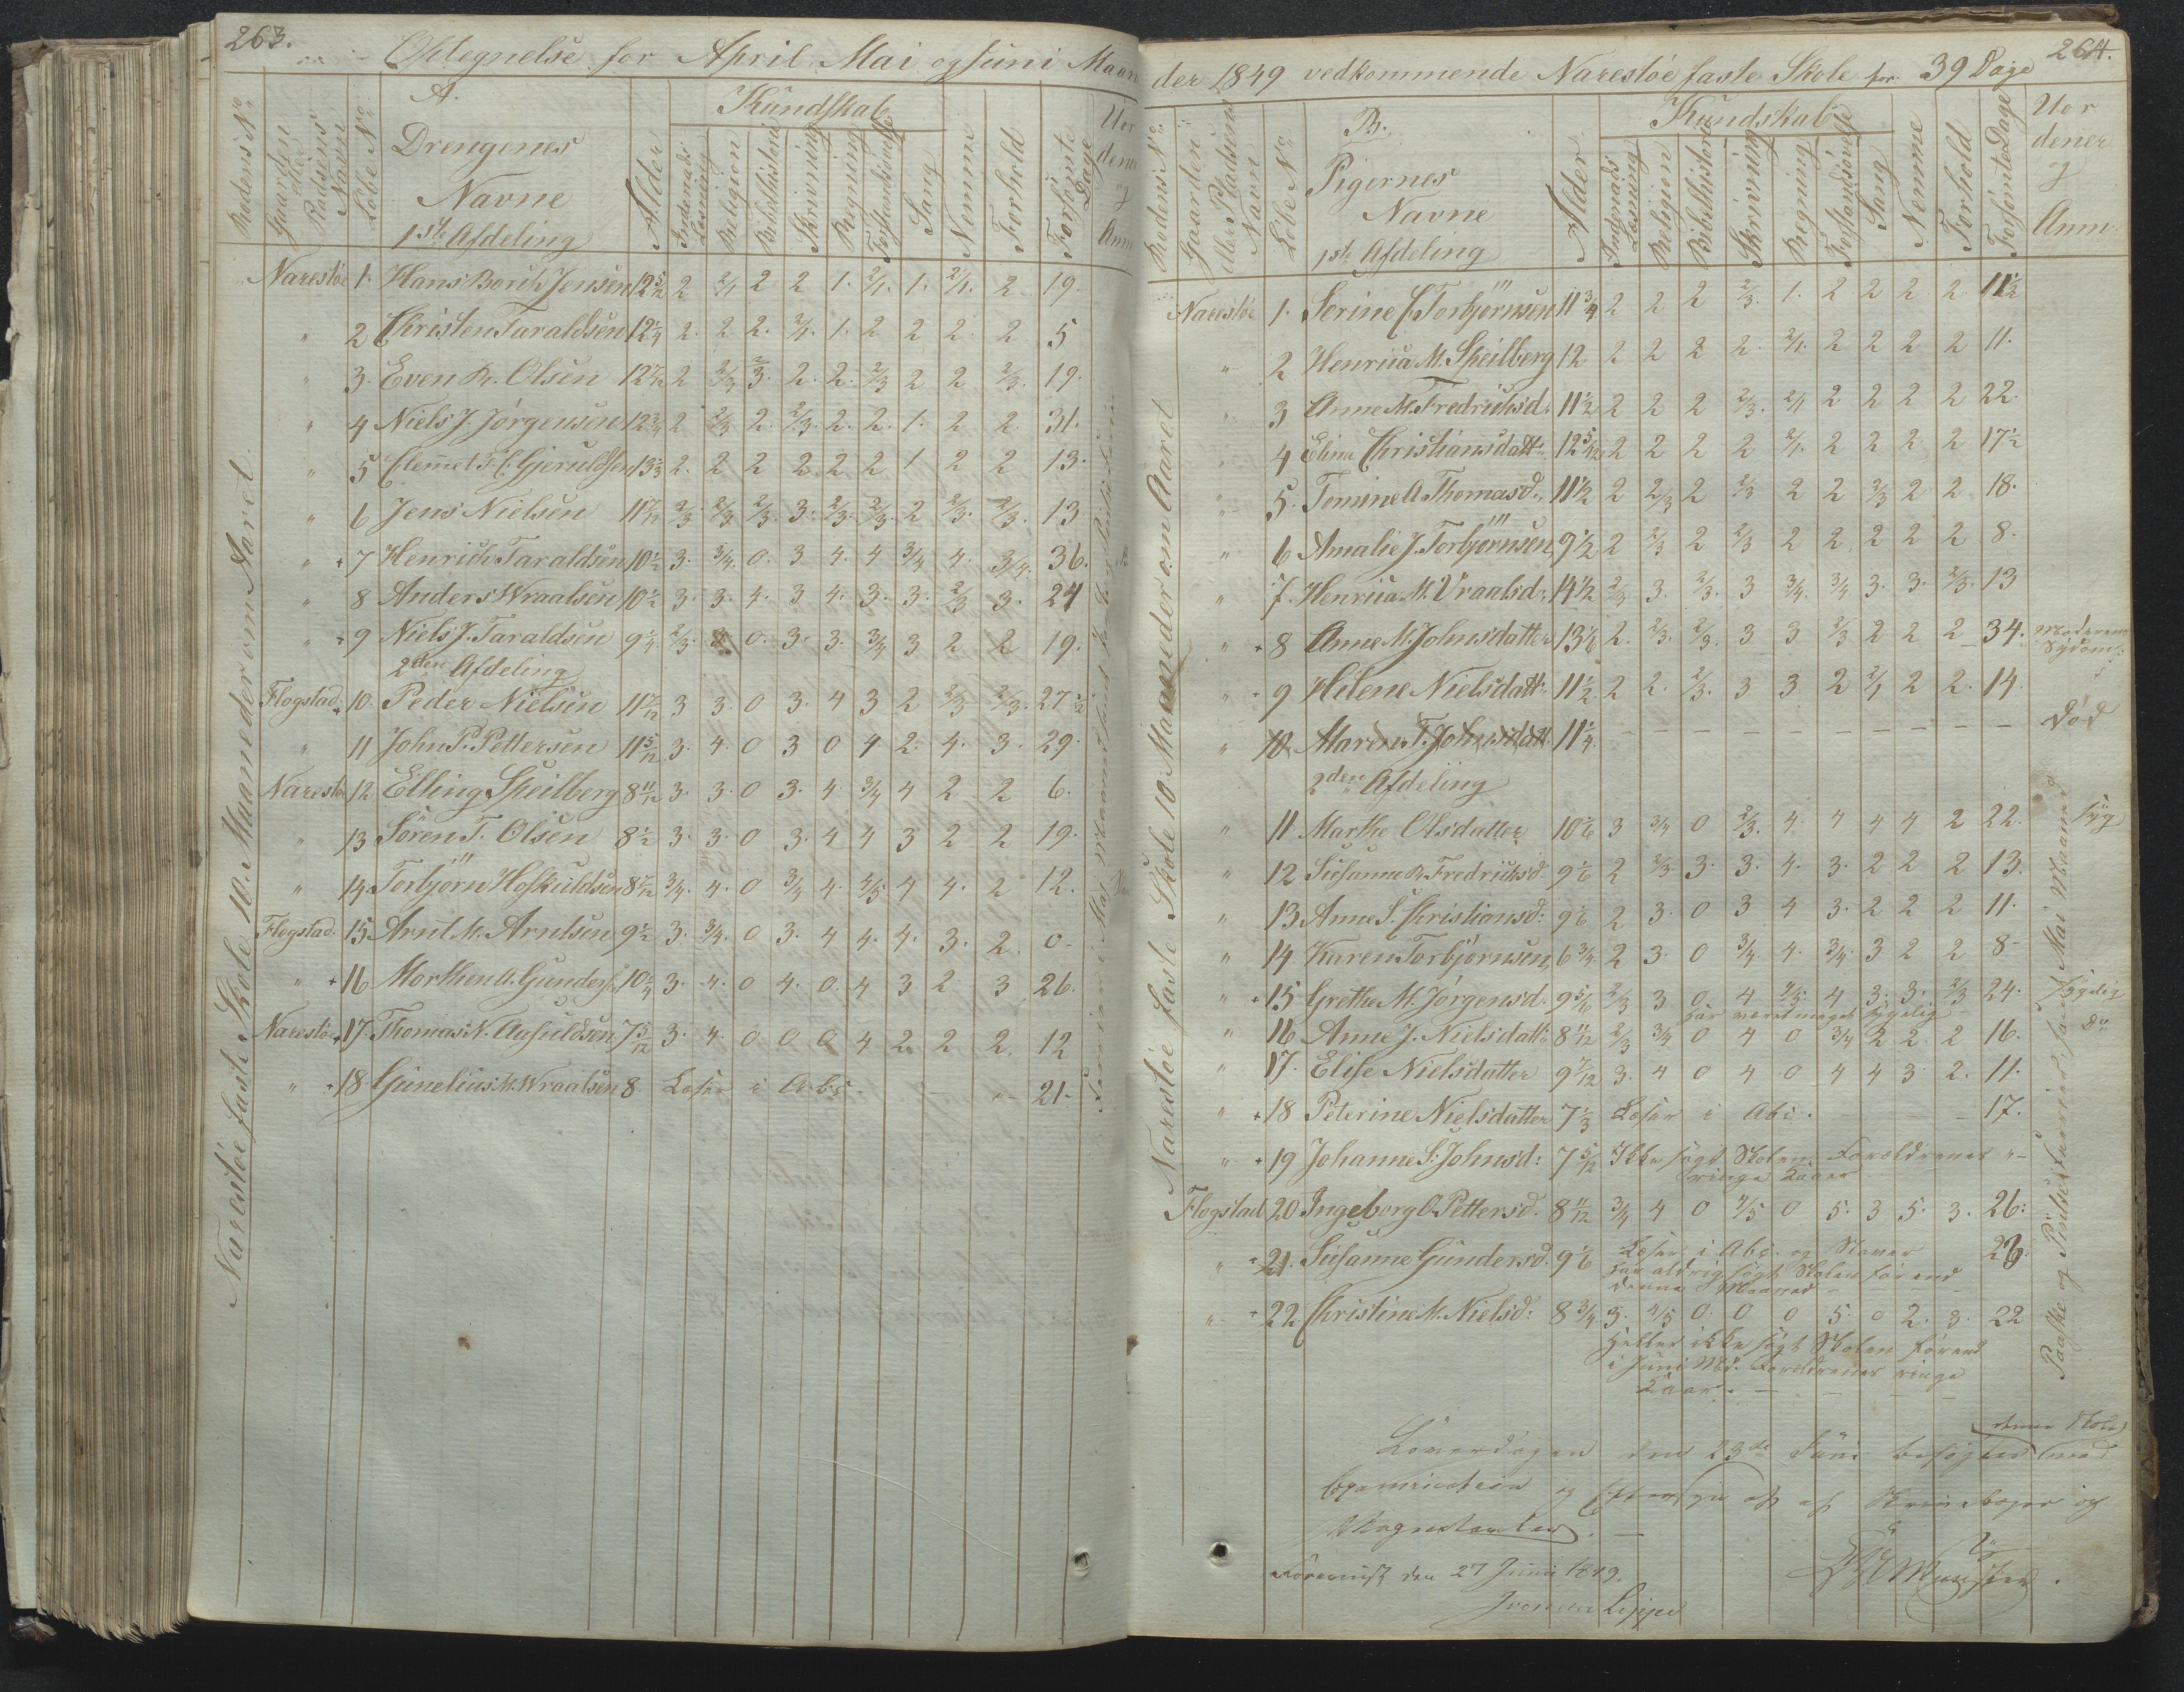 263.
Optegnelse for April Mai og Juni Maan
A.
Kundskab
Rodens No.
Gaarden eller Pladsens Navn
Løbe No.
Drengenes Navne
1ste Afdeling
Alder
Indenads Læsning
Religion
Bibelhistorie
Skrivning
Regning
Forstandsøvelse
Sang
Nemme
Forhold
Forsømte Dage
Uor dener og Anm
Narestöe 1. Hans Borih Jensen 12 5/12 2 2/1 2 2 1. 2/1. 1. 2/1. 2 19.
" 2 Christen Taraldsen 12 1/4 2. 2 2. 2/1. 1. 2 2 2. 2 5
" 3. Even R. Olsen 12 7/12 2 2/3 2/3. 2. 2. 2/3 2 2 2/3. 19.
" 4 Niels J. Jørgensen 12 3/4 2 2/3 2. 2/3. 2. 2. 1. 2 2. 31.
" 5 Clemet T. C. Gjeruldsen 13 1/3 2. 2 2 2 2 2 1 2 2 13.
" 6 Jens Nielsen 11 7/12 2/3. 2/3 2/3. 3. 2/3. 2/3. 2 2/3. 2/3. 13
" + 7 Henrich Taraldsen 10 1/2 3. 3/4. 0. 3 4. 4 3/4 4. 3/4. 36.
" 8 Anders Wraalsen 10 1/2 3. 3. 4. 3 4. 3. 3. 2/3 3. 24
" + 9 Niels J. Taraldsen 9 1/4 2/3. 3. 0. 3. 3. 3/4 3 2 2 19.
2den Afdeling
Flogstad + 10. Peder Nielsen 11 7/12 3 3. 0 3. 4 3 2 2/3 2/3. 27 1/2
" 11 John P. Pettersen 11 5/12 3. 4. 0 3 0 4 2. 4. 3. 29.
Narestöe 12 Elling Speilberg 8 11/12 3. 3. 0 3. 4. 3/4 4 2 2 6.
" 13 Sören T. Olsen 8 1/2 3. 3. 0 3. 4 4 3 2 2 19.
" 14. Torbjörn Hofkuldsen 8 7/12 3/4. 4. 0 3/4 4. 4/5 4 4. 2 12.
Flogstad. 15 Arnt M. Arntsen 9 1/2 3. 3/4. 0 3. 4 4. 4. 3. 2. 0 -
" + 16 Morthen A. Gunders. 10 1/4 3. 4. 0 4. 0. 4 3 2 3 26.
Narestöe + 17. Thomas N. Aasuldsen 7 5/12 3. 4. 0 0 0 4 2 2 2. 12
" + 18 Gunelius M. Wraalsen 8. Læser i Abc. - - " - 21 -
Narestöe faste Skole 10. Maaneder om Aaret.
264.
der 1849 vedkommende Narestöe faste Skole for 39 Dage
B.
Kundskab
Rodens No.
Gaardens eller Pladsens Navn
Löbe No.
Pigernes Navne
1ste Afdeling
Alder
Indenads Læsning
Religion
Bibelhistorie
Skrivning
Regning
Forstandsøvelse
Sang
Nemme
Forhold
Forsömte Dage
Uor dener og Anm.
Narestöe 1. Serine C. Torbjörnsen 11 3/4 2 2 2 2/3. 1. 2 2 2. 2. 11 1/2
" 2 Henrica M. Speilberg 12 2 2 2 2. 2/1. 2 2 2 2 11.
" 3 Anne M. Fredrichsd. 11 1/2 2 2 2 2/3. 2/1 2 2 2 2 22.
" 4 Eline Christiansdatt. 12 5/12 2 2 2 2 2/1. 2 2 2 2 17 1/2
" 5. Tomine A. Thomasd. 11 1/2 2 2/3 2 2/3 2 2 2/3 2 2 18.
" 6 Amalie J. Torbjörnsen 9 1/2 2 2/3 2 2/3 2 2 2 2 2 8.
" 7. Henrica M. Vraalsd. 14 1/2 2/3 3. 2/3. 3 3/4. 3/4 3. 3. 2/3. 13
" + 8 Anne M. Johnsdatter 13 1/6 2. 2/3. 2/3. 3 3 2/3 2 2 2 34. Moderens Sygdom.
" + 9 Helene Nielsdatt. 11 1/2 2 2. 2/3. 3 3 2 2/1 2 2. 14.
" 10 Maren T. Johnsdatt 11 1/4. - - - - - - - - - - Död
2den Afdeling
" 11 Marthe Olsdatter 10 1/6 3 3/4 0 2/3. 4. 4 4 4 2 22. syg
" 12 Susanne R. Fredrichsd. 9 1/6 2 2/3 3. 3. 4. 3. 2 2 2 13.
" 13 Anne S. Christiansd: 9 1/6 2 3. 0 3 4 3. 2 2 2 11.
" 14 Karen Torbjörnsen 6 3/4 2 3. 0 3/4. 4. 3/4. 3 2 2 8 -
" + 15 Grethe M. Jørgensd. 9 5/6 2/3 3 0 4 4/5. 4 3. 3. 2/3 24. sygelig
har været meget sygelig
" 16 Anne J. Nielsdatt. 8 11/12 2/3 3/4 0 4 0 3/4 2 2. 2 16. Do
" 17. Elise Nielsdatter 9 7/12 3. 4 0 4 0 4 4 3. 2. 11.
" + 18 Peterine Nielsdatter 7 1/3 Læser i Abc. - - - 17.
" + 19 Johanne S. Johnsd: 7 5/12 Ikke søgt Skolen Forældrenes " -
ringe Kaar
Flogstad 20 Ingeborg O. Pettersd. 8 11/12 3/4 4 0 4/5 0 5. 3 5. 3. 26:
" + 21. Susanne Gundersd. 9 1/6 Læser i Abc. og Staver 26.
har aldrig søgt Skolen før end
denne Maaned -
" + 22. Christine M. Nielsd: 8 3/4 3. 4/5 0. 0 0 5. 0 2. 3. 22
Heller ikke søgt Skolen førend
i Juni Md. Forældrenes ringe
Kaar. - - -
Narestöe faste Skole 10. Maaneder om Aaret
Löverdagen den 23de Juni besøgtes denne Skole med
Examination og Eftersyn af Skrivebøger og
den 27 Juni 1849.